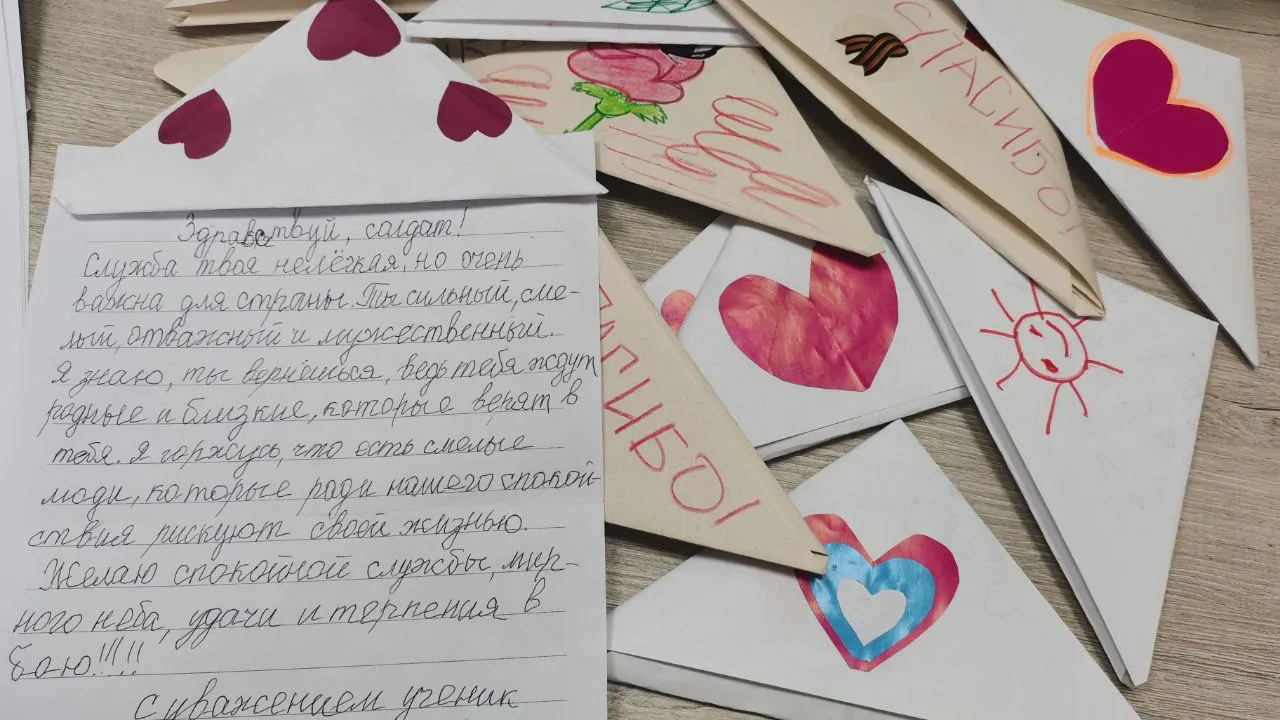 Здравствуй, солдат!
Служба твоя нелёгкая, но очень
важна для страны. Ты сильный, сме-
лый, отважный и мужественный.
Я знаю, ты вернёшься, ведь тебя ждут
родные и близкие, которые верят в
тебя. Я горжусь, что есть смелые
люди, которые ради нашего спокой-
ствия рискуют своей жизнью.
Желаю спокойной службы, мир-
ного неба, удачи и терпения в
бою!!!!!
С уважением ученик
СПАСИБО!
ПАСИБО!